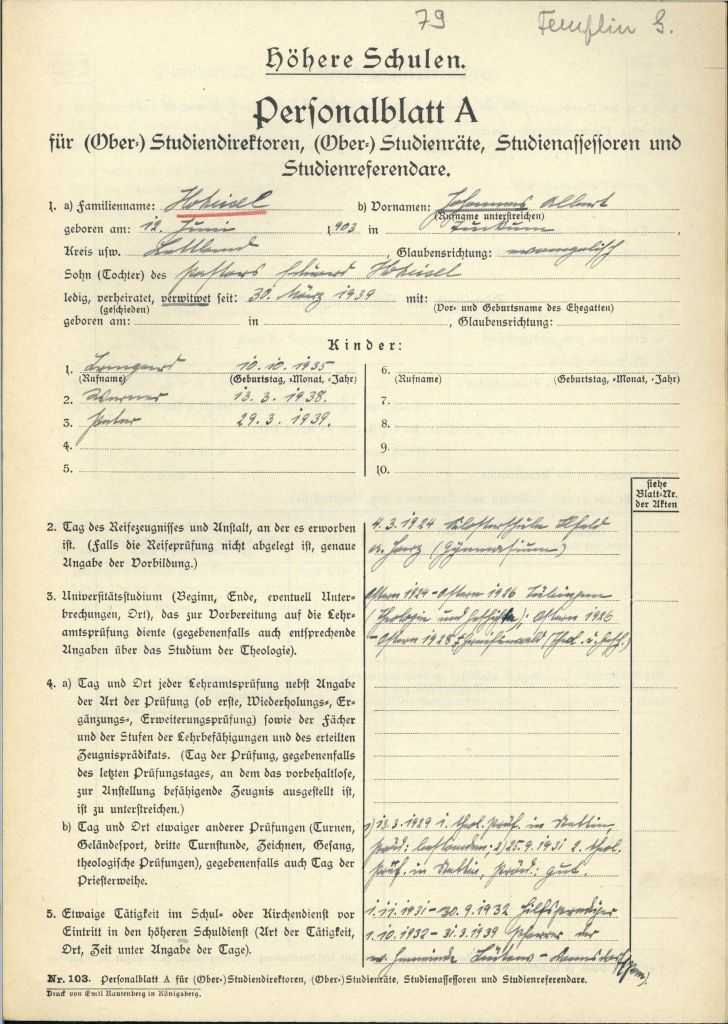 79 Templin G.
Höhere Schulen.
Personalblatt A
für (Ober-) Studiendirektoren, (Ober-) Studienräte, Studienassessoren und
Studienreferendare.
1. a) Familienname: Hoheisel b) Vornamen: Johannes Albert
(Rufname unterstreichen)
geboren am: 12. Juni 1903 in Tuckum
Kreis usw. Lettland Glaubensrichtung: evangelisch
Sohn (Tochter) des Pastors Eduard Hoheisel
ledig, verheiratet, verwitwet seit: 30. März 1939 mit:
(geschieden) (Vor- und Geburtsname des Ehegatten)
geboren am: in , Glaubensrichtung:
Kinder:
1. Irmgard 10. 10. 1935 6.
(Rufname) (Geburtstag, -Monat, -Jahr) (Rufname) (Geburtstag, -Monat, -Jahr)
2. Werner 13. 3. 1938. 7.
3. Peter 29. 3. 1939. 8.
4. 9.
5. 10.
siehe
Blatt-Nr.
der Akten
2. Tag des Reifezeugnisses und Anstalt, an der es erworben
ist. (Falls die Reifeprüfung nicht abgelegt ist, genaue
Angabe der Vorbildung.)
4. 3. 1924 Klosterschule Ilfeld
a. Harz (Gymnasium)
3. Universitätsstudium (Beginn, Ende, eventuell Unter-
brechungen, Ort), das zur Vorbereitung auf die Lehr-
amtsprüfung diente (gegebenenfalls auch entsprechende
Angaben über das Studium der Theologie).
Ostern 1924 - Ostern 1926 Tübingen
(Theologie und Geschichte); Ostern 1926
- Ostern 1928 Greifswald (Theol. u. Gesch.)
4. a) Tag und Ort jeder Lehramtsprüfung nebst Angabe
der Art der Prüfung (ob erste, Wiederholungs-, Er-
gänzungs-, Erweiterungsprüfung) sowie der Fächer
und der Stufen der Lehrbefähigungen und des erteilten
Zeugnisprädikats. (Tag der Prüfung, gegebenenfalls
des letzten Prüfungstages, an dem das vorbehaltlose,
zur Anstellung befähigende Zeugnis ausgestellt ist,
ist zu unterstreichen.)
b) Tag und Ort etwaiger anderer Prüfungen (Turnen,
Geländesport, dritte Turnstunde, Zeichnen, Gesang,
theologische Prüfungen), gegebenenfalls auch Tag der
Priesterweihe.
1) 13. 3. 1929 1. theol. Prüf. in Stettin,
Präd: bestanden. 2) 25. 9. 1931 2. theol.
Prüf. in Stettin, Präd: gut.
5. Etwaige Tätigkeit im Schul- oder Kirchendienst vor
Eintritt in den höheren Schuldienst (Art der Tätigkeit,
Ort, Zeit unter Angabe der Tage).
1. 11. 1931 - 30. 9. 1932 Hilfsprediger
1. 10. 1932 - 31. 3. 1939 Pfarrer der
ev. Gemeinde
Nr. 103. Personalblatt A für (Ober-) Studiendirektoren, (Ober-) Studienräte, Studienassessoren und Studienreferendare.
Druck von Emil Rautenberg in Königsberg.